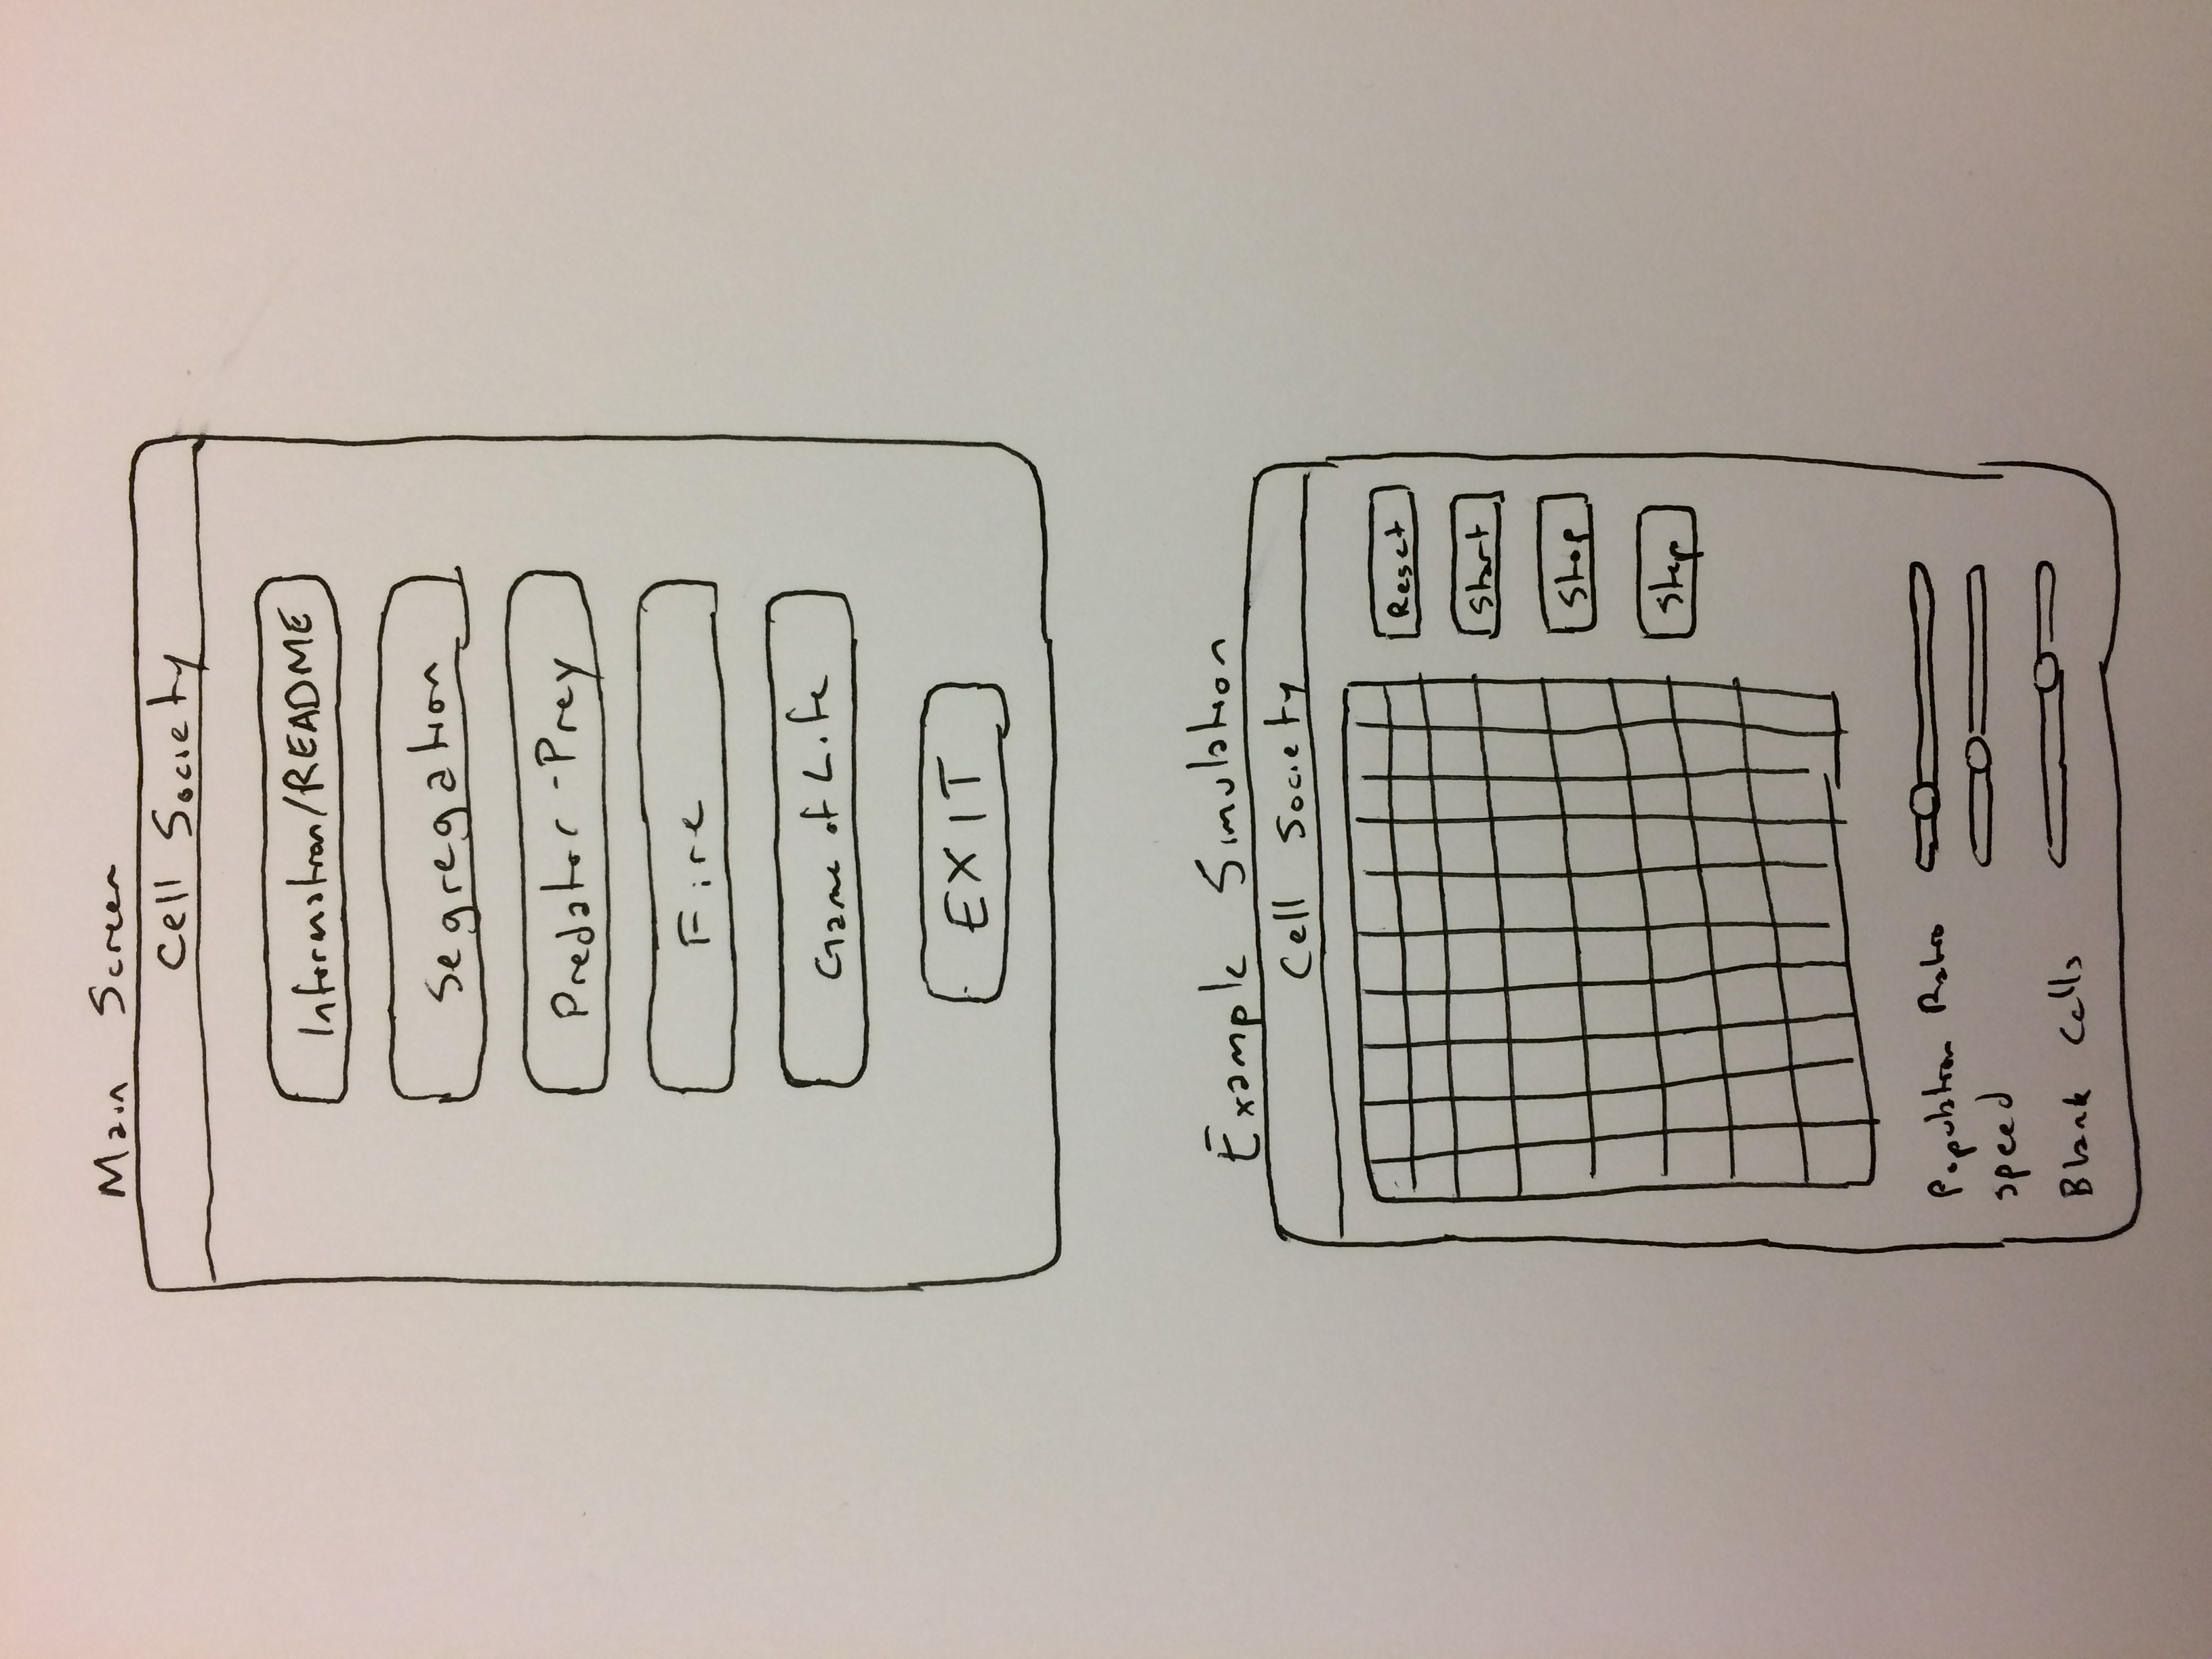 Main Screen
Cell Society
Information/README
Segregation
Predator-Prey
Fire
Game of Life
EXIT
Example Simulation
Cell Society
Reset
Start
Stop
Step
Population Ratio
speed
Blank Cells